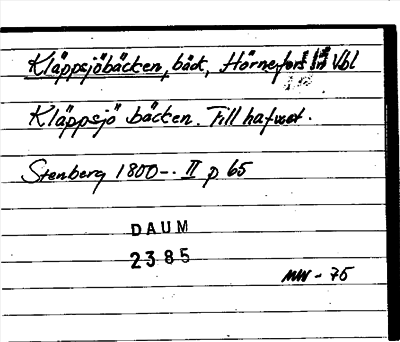 Kläppsjöbäcken, bäck, Hörnefors Vbl
Kläppsjö bäcken. Till hafvset.
Stenberg 1800-. II p 65
DAUM
2385
MW - 75